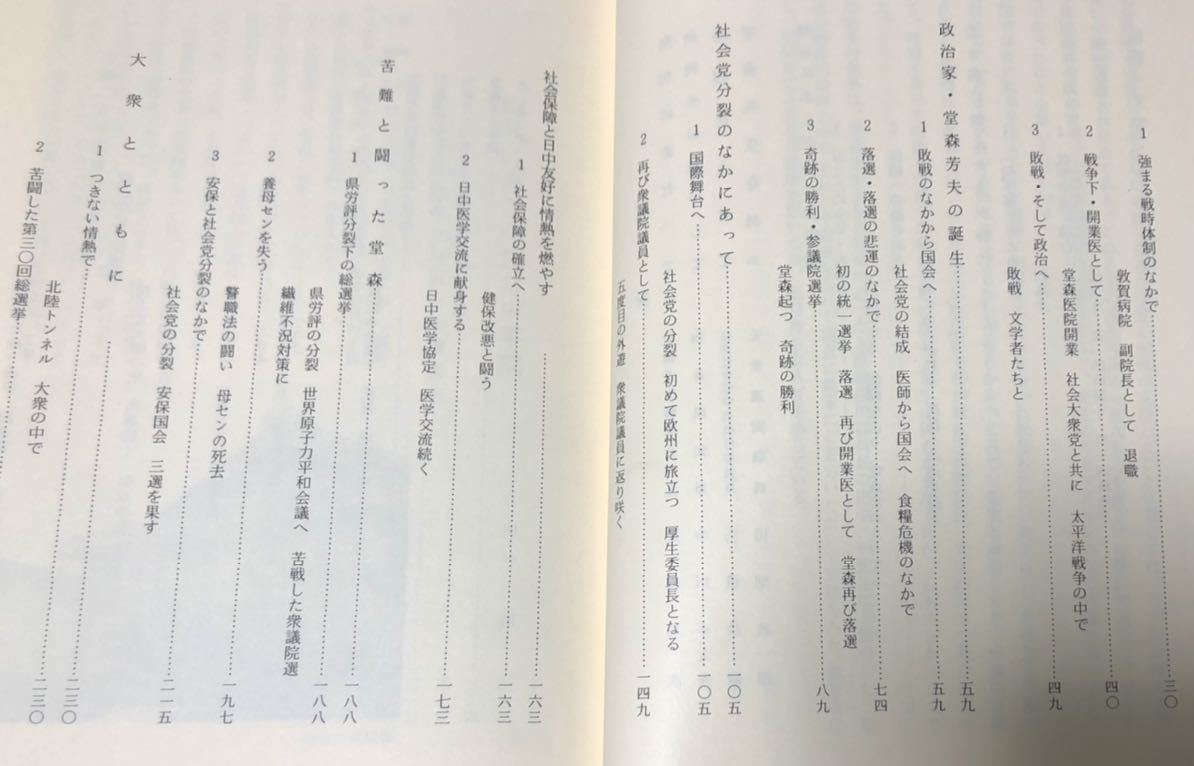 1 強まる戦時体制のなかで……三〇
敦賀病院 副院長として 退職
2 戦争下・開業医として……四〇
堂森医院開業 社会大衆党と共に 太平洋戦争の中で
3 敗戦・そして政治へ……四九
敗戦 文学者たちと
政治家・堂森芳夫の誕生……五九
1 敗戦のなかから国会へ……五九
社会党の結成 医師から国会へ 食糧危機のなかで
2 落選・落選の悲運のなかで……七四
初の統一選挙 落選 再び開業医として 堂森再び落選
3 奇跡の勝利・参議院選挙……八九
堂森起つ 奇跡の勝利
社会党分裂のなかにあって……一〇五
1 国際舞台へ……一〇五
社会党の分裂 初めて欧州に旅立つ 厚生委員長となる
2 再び衆議院議員として……一四九
五度目の外遊 衆議院議員に返り咲く
社会保障と日中友好に情熱を燃やす……一六三
1 社会保障の確立へ……一六三
健保改悪と闘う
2 日中医学交流に献身する……一七三
日中医学協定 医学交流続く
苦難と闘った堂森……一八八
1 県労評分裂下の総選挙……一八八
県労評の分裂 世界原子力平和会議へ 苦戦した衆議院選
繊維不況対策に
2 養母センを失う……一九七
警職法の闘い 母センの死去
3 安保と社会党分裂のなかで……二一五
社会党の分裂 安保国会 三選を果す
大衆とともに……二三〇
1 つきない情熱で……二三〇
北陸トンネル 大衆の中で
2 苦闘した第三〇回総選挙……